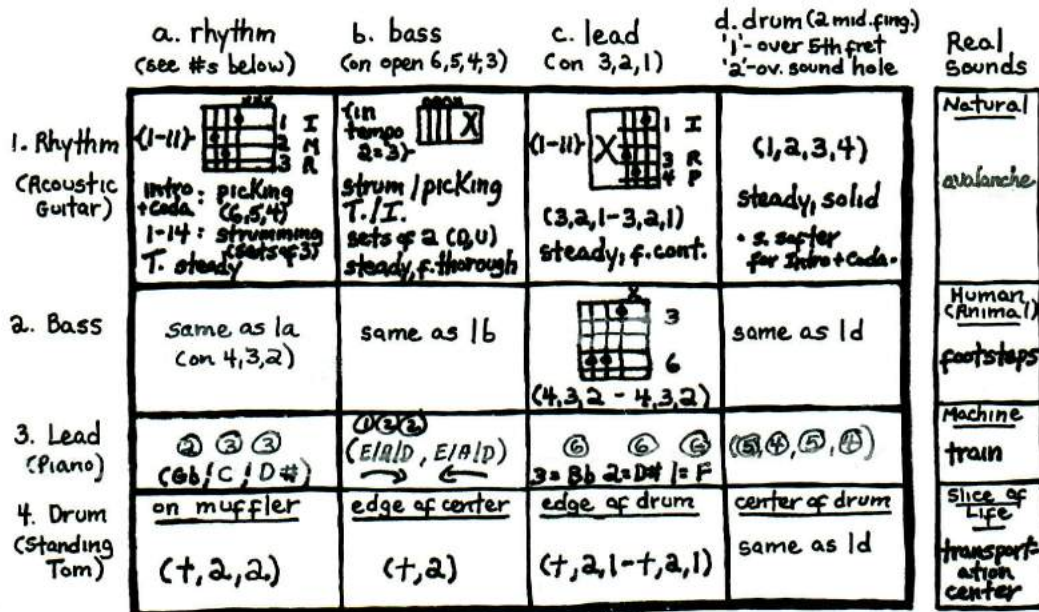 a. rhythm
(see #s below)
b. bass
(on open 6,5,4,3)
c. lead
(on 3,2,1)
d. drum (2 mid. fing.)
'1'- over 5th fret
'2'-ov. sound hole
Real
Sounds
1. Rhythm
(Acoustic
Guitar)
{1-11}
1 I
2 M
3 R
intro
+Coda: picking
(6,5,4)
1-14: strumming
(sets of 3)
T. steady
{in
tempo
2=3}
X
strum/picking
T./I.
sets of 2 (D,U)
steady, f. thorough
{1-11}
X
1 I
3 R
4 P
(3,2,1-3,2,1)
steady, f. cont.
(1,2,3,4)
steady, solid
• s. softer
for Intro + Coda.
Natural
avalanche
2. Bass
same as 1a
(on 4,3,2)
same as 1b
x
3
6
(4,3,2 - 4,3,2)
same as 1d
Human
(Animal)
footsteps
3. Lead
(Piano)
② ③ ③
(Gb/C/D#)
① ② ②
(E/A/D, E/A/D)
⑥ ⑥ ⑥
3=Bb 2=D# 1=F
(⑤,④,⑤,④)
Machine
train
4. Drum
(Standing
Tom)
on muffler
(t,2,2)
edge of center
(t,2)
edge of drum
(t,2,1-t,2,1)
center of drum
same as 1d
Slice of
Life
transport-
ation
center